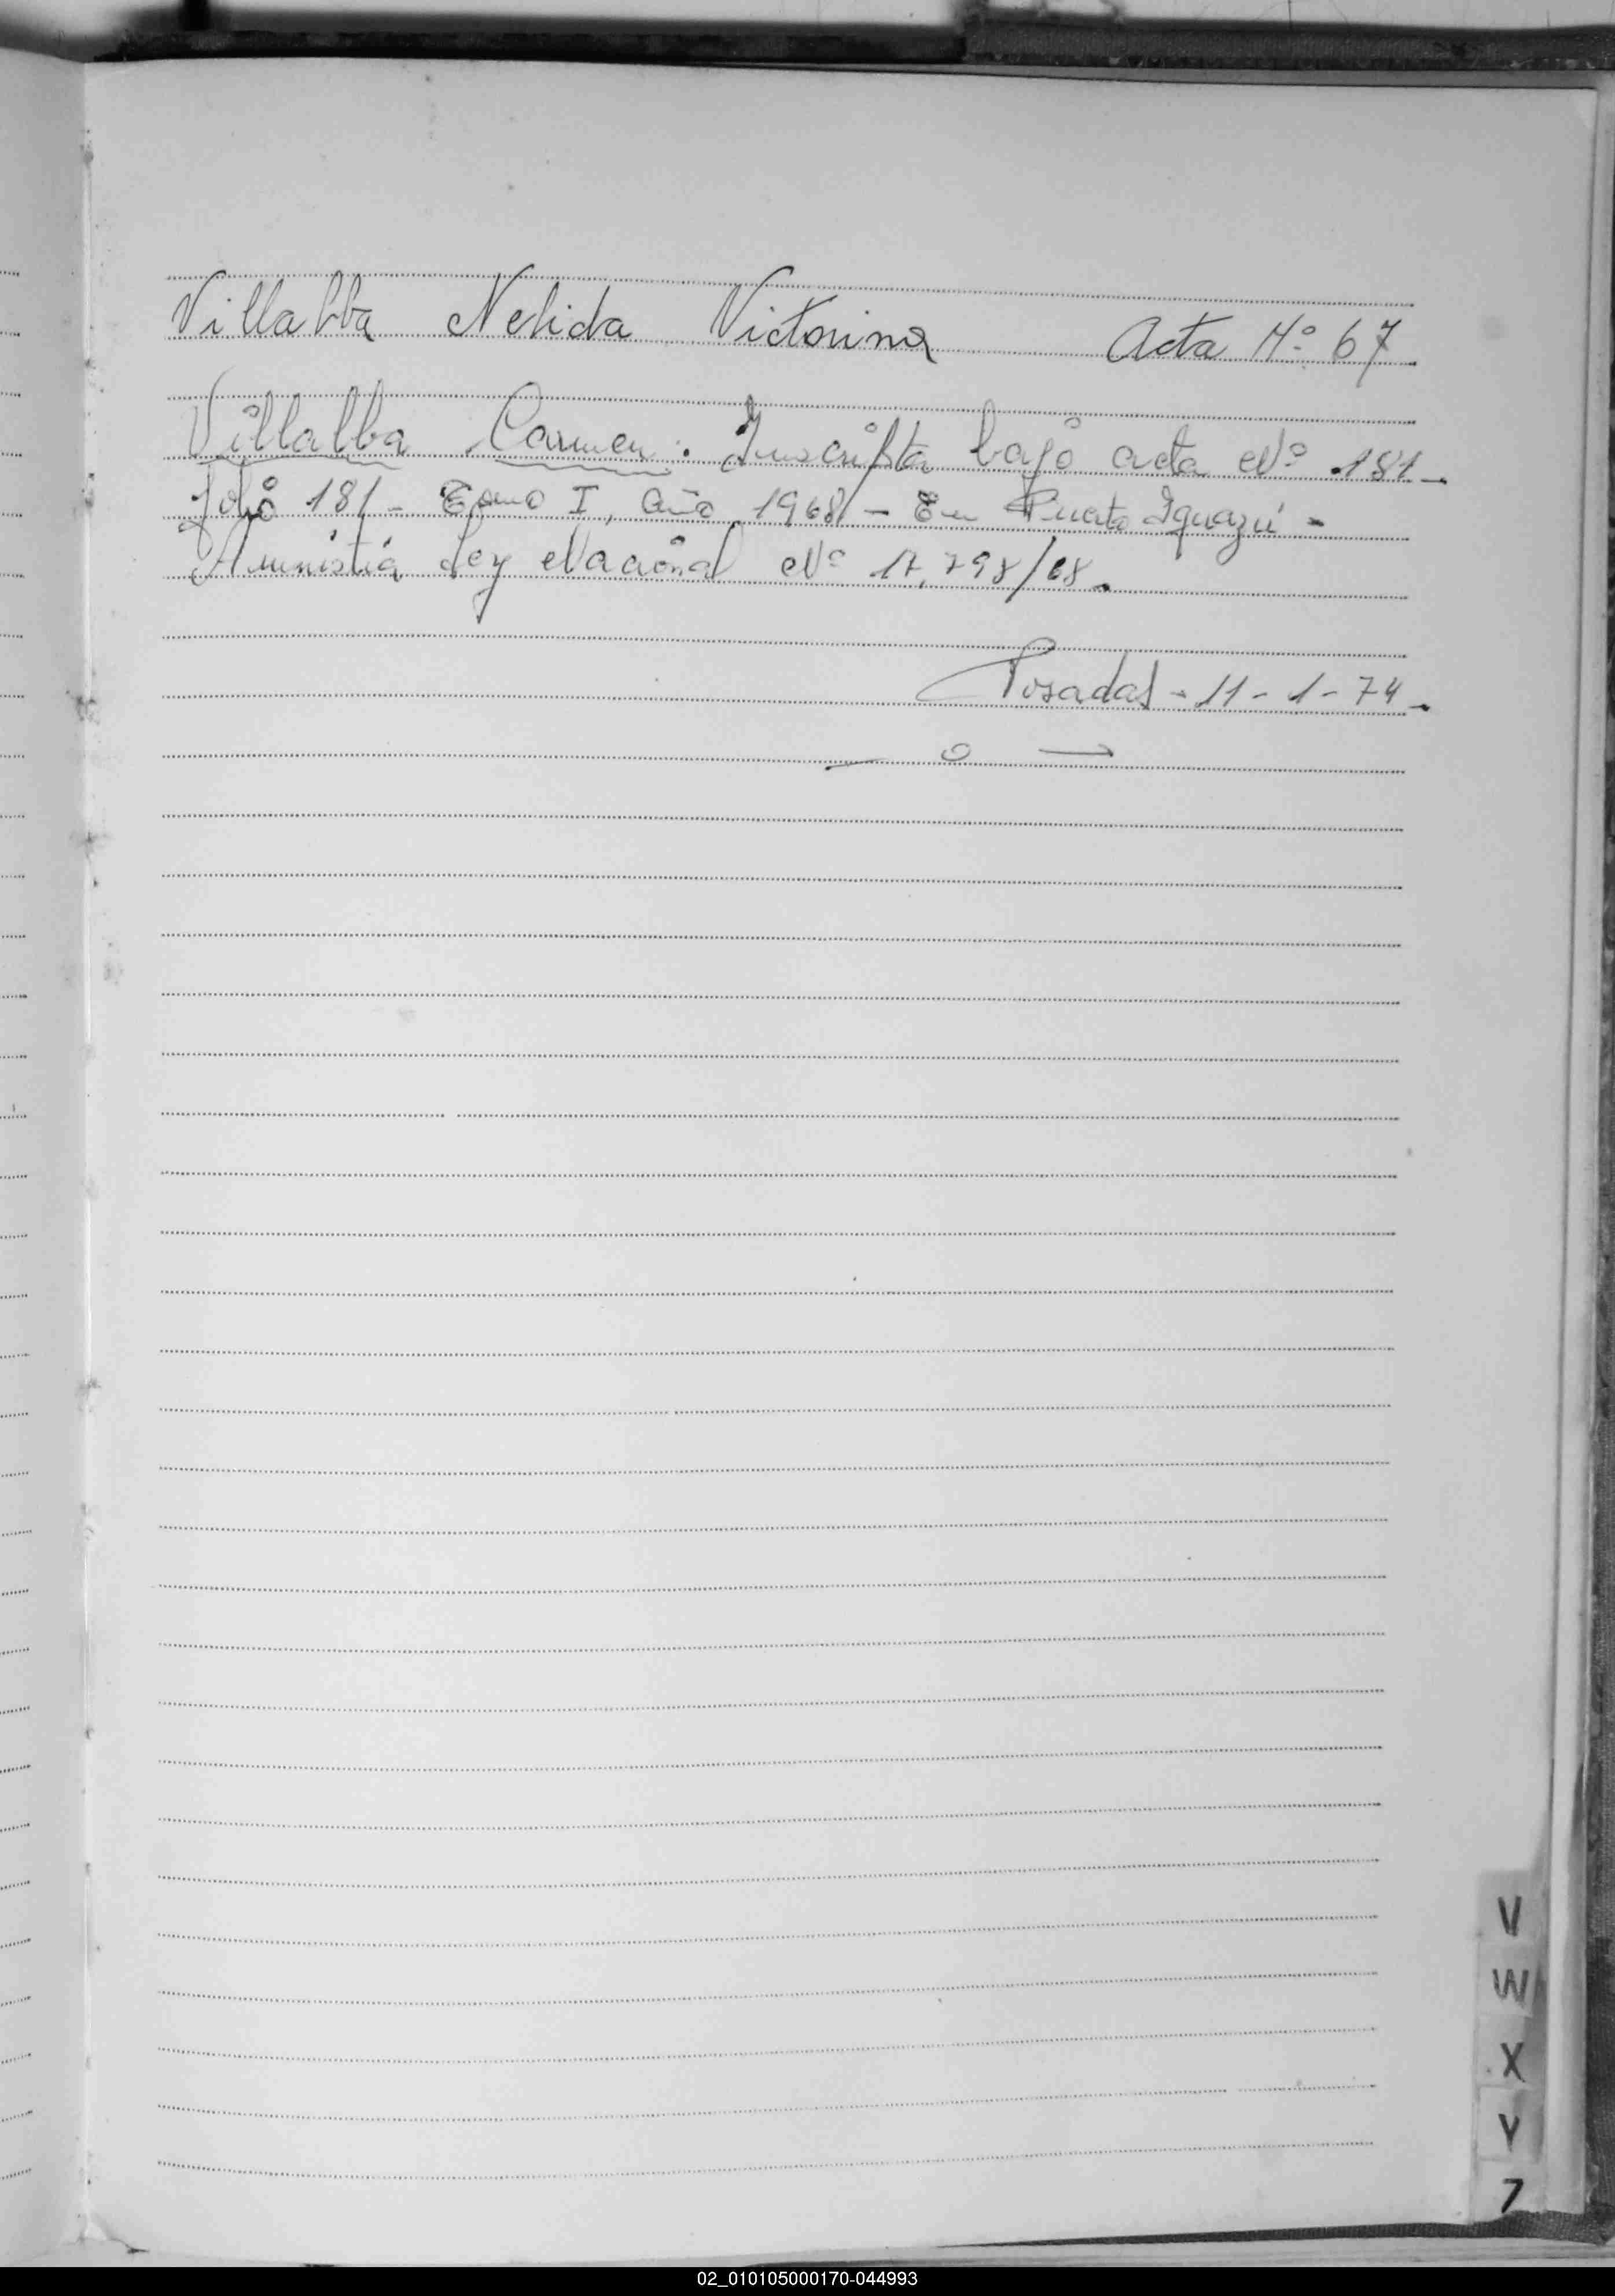 Villalba Nelida Victorina Acta Nº 67
Villalba Carmen: Inscripta bajo acta Nº 181-
folio 181- Tomo I, año 1968 - En Puerto Iguazú -
Amnistia Ley Nacional Nº 17.798/68.
Posadas - 11 - 1 - 74 -
V
W
X
Y
Z
02_010105000170-044993